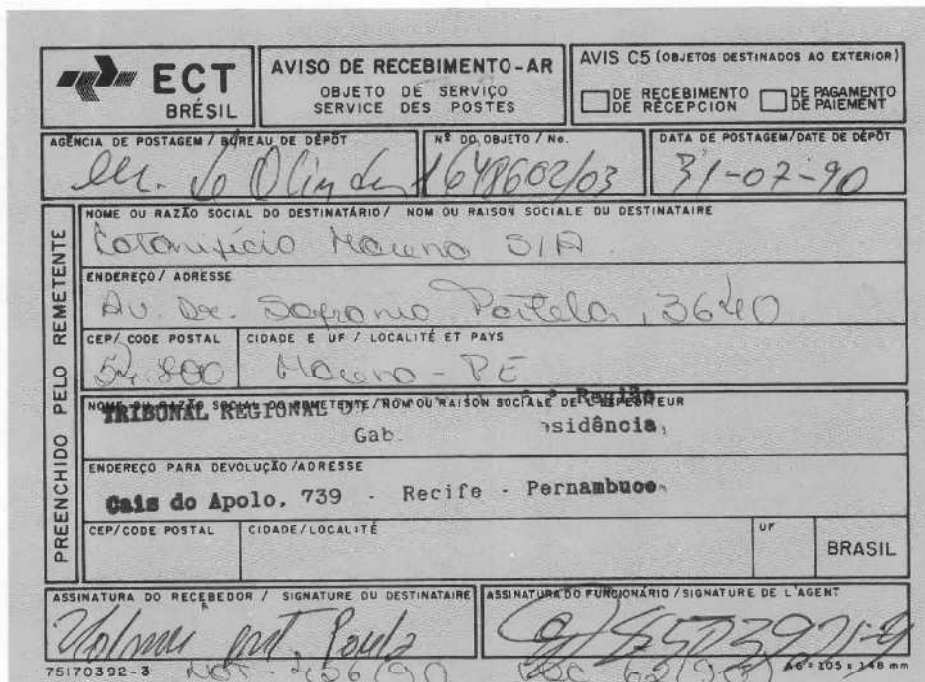 ECT
BRÉSIL
AVISO DE RECEBIMENTO-AR
OBJETO DE SERVIÇO
SERVICE DES POSTES
AVIS C5 (OBJETOS DESTINADOS AO EXTERIOR)
DE RECEBIMENTO
DE RÉCEPCION
DE PAGAMENTO
DE PAIEMENT
AGÊNCIA DE POSTAGEM / BUREAU DE DÉPÔT
Nº DO OBJETO / No.
DATA DE POSTAGEM/DATE DE DÉPÔT
Olinda
1648602/03
31-07-90
PREENCHIDO PELO REMETENTE
NOME OU RAZÃO SOCIAL DO DESTINATÁRIO / NOM OU RAISON SOCIALE DU DESTINATAIRE
Cotonifício Moreno S/A
ENDEREÇO / ADRESSE
Av. Dr. Sofronio Portela, 3640
CEP/CODE POSTAL
CIDADE E UF / LOCALITÉ ET PAYS
54.800
Moreno - PE
NOME OU RAZÃO SOCIAL DO REMETENTE/NOM OU RAISON SOCIALE DE L'EXPÉDITEUR
TRIBUNAL REGIONAL Região
Gab. sidência,
ENDEREÇO PARA DEVOLUÇÃO/ADRESSE
Cais do Apolo, 739 - Recife - Pernambuco
CEP/CODE POSTAL
CIDADE/LOCALITÉ
UF
BRASIL
ASSINATURA DO RECEBEDOR / SIGNATURE DU DESTINATAIRE
ASSINATURA DO FUNCIONÁRIO / SIGNATURE DE L'AGENT
75170392-3
NOT - 426/90
A6 = 105 x 148 mm